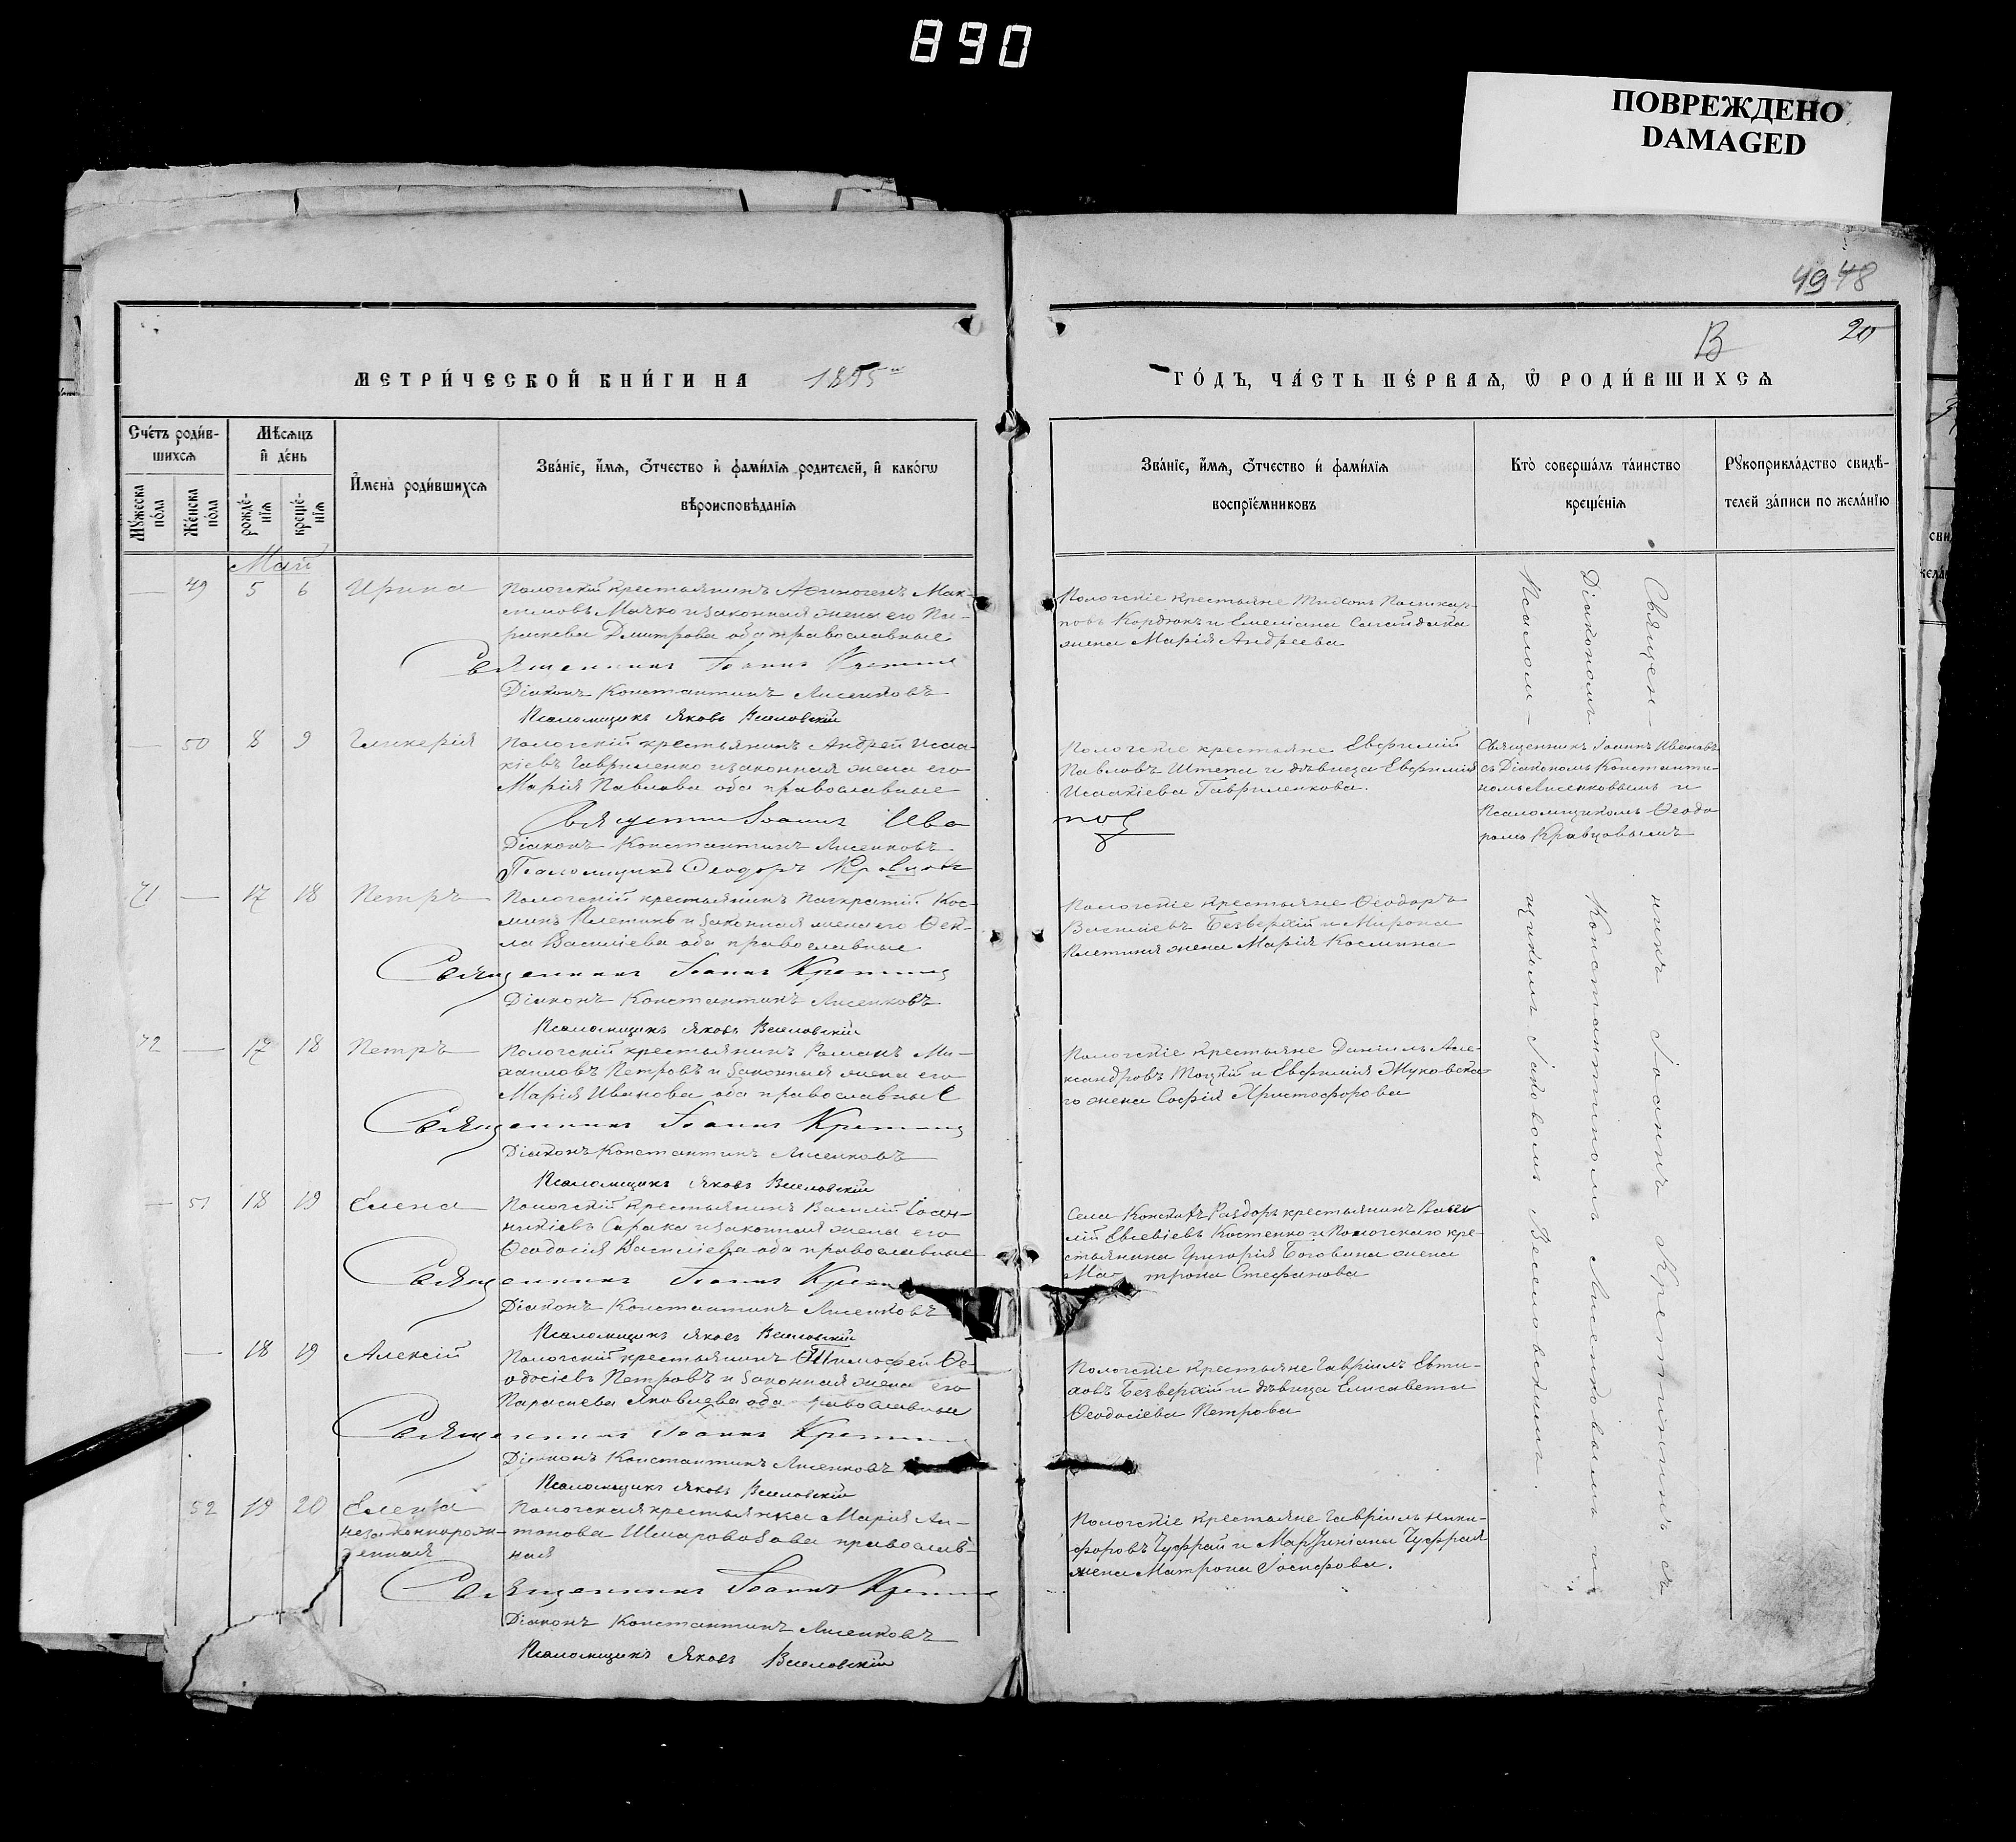 890
ПОВРЕЖДЕНО
DAMAGED
49 48
В
20
МЕТРИ́ЧЕСКОЙ КНИ́ГИ НА 1895
ГО́ДЪ, ЧА́СТЬ ПЕ́РВАѦ, Ѡ РОДИ́ВШИХСѦ
Сче́тъ роди́в-
шихсѧ
Мѣ́сѧцъ
и де́нь
Мꙋ́жеска по́ла
Же́нска по́ла
рожде́-нїѧ
креще́-нїѧ
И́мена̀ роди́вшихсѧ
Зва́нїе, и́мѧ, о́тчество и фами́лїѧ родителей, и како́гѡ
вѣроисповѣ́данїѧ
Зва́нїе, и́мѧ, о́тчество и фами́лїѧ
воспрїе́мниковъ
Кто̀ соверша́лъ та́инство
креще́нїѧ
Рꙋкоприкла́дство свидѣ́-
телей за́писи по жела́нїю
Май
— 49 5 6 Ирина
Пологскій крестьянинъ Афиногенъ Мак-
симовъ Мачко и законная жена его Па-
раскева Дмитрова оба православные
Священникъ Іоаннъ
Діаконъ Константинъ Лисенковъ
Псаломщикъ Яковъ Веселовскій
Пологскіе крестьяне Тихонъ Поликар-
повъ Кордюкъ и Емеліана Сагайдака
жена Марія Андреева
— 50 8 9 Гликерія
Пологскій крестьянинъ Андрей Исаа-
кіевъ Гавриленко и законная жена его
Марія Павлова оба православные
Священникъ Іоаннъ Ива
Діаконъ Константинъ Лисенковъ
Псаломщикъ Ѳеодоръ Кравцовъ
Пологскіе крестьяне Евфимій
Павловъ Штепа и дѣвица Евфимія
Исаакіева Гавриленкова.
Священникъ Іоаннъ Ивановъ
съ Діакономъ Константи-
номъ Лисенковымъ и
Псаломщикомъ Ѳеодо-
ромъ Кравцовымъ
71 — 17 18 Петръ
Пологскій крестьянинъ Панкратій Кос-
минъ Плетинь и законная жена его Ѳек-
ла Василіева оба православные
Священникъ Іоаннъ Кретинин
Діаконъ Константинъ Лисенковъ
Псаломщикъ Яковъ Веселовскій
Пологскіе крестьяне Ѳеодоръ
Василіевъ Безверхій и Мирона
Плетиня жена Марія Космина
72 — 17 18 Петръ
Пологскій крестьянинъ Романъ Ми-
хаиловъ Петровъ и законная жена его
Марія Иванова оба православные
Священникъ Іоаннъ Кретинин
Діаконъ Константинъ Лисенковъ
Псаломщикъ Яковъ Веселовскій
Пологскіе крестьяне Даніилъ Але-
ксандровъ Тоцкій и Евфимія Жуковска-
го жена Софія Христофорова
— 51 18 19 Елена
Пологскій крестьянинъ Василій Іоан-
никіевъ Сирака и законная жена его
Ѳеодосія Василіева оба православные
Священникъ Іоаннъ
Діаконъ Константинъ Лисенковъ
Псаломщикъ Яковъ Веселовскій
Села Раздоръ крестьянинъ Васи-
лій Евсевіевъ Костенко и Пологскаго кре-
стьянина Григорія Боговина жена
Матрона Стефанова
— 18 19 Алексій
Пологскій крестьянинъ Тимофей Ѳе-
одосіевъ Петровъ и законная жена его
Параскева Яковлева оба православные
Священникъ Іоаннъ
Діаконъ Константинъ Лисенковъ
Псаломщикъ Яковъ Веселовскій
Пологскіе крестьяне Гавріилъ Евти-
ховъ Безверхій и дѣвица Елисавета
Ѳеодосіева Петрова
52 19 20 Елена
незаконнорож-
денная
Пологская крестьянка Марія Ан-
тонова Шмаровозова православ-
ная
Священникъ Іоаннъ
Діаконъ Константинъ Лисенковъ
Псаломщикъ Яковъ Веселовскій
Пологскіе крестьяне Гавріилъ Ники-
форовъ Чуфрай и Мартиніана Чуфрая
жена Матрона Іосифова.
Священ-никъ Іоаннъ Кретининъ съ
Діакономъ Константиномъ Лисенковымъ и
Псалом-щикомъ Іаковомъ Веселовскимъ.